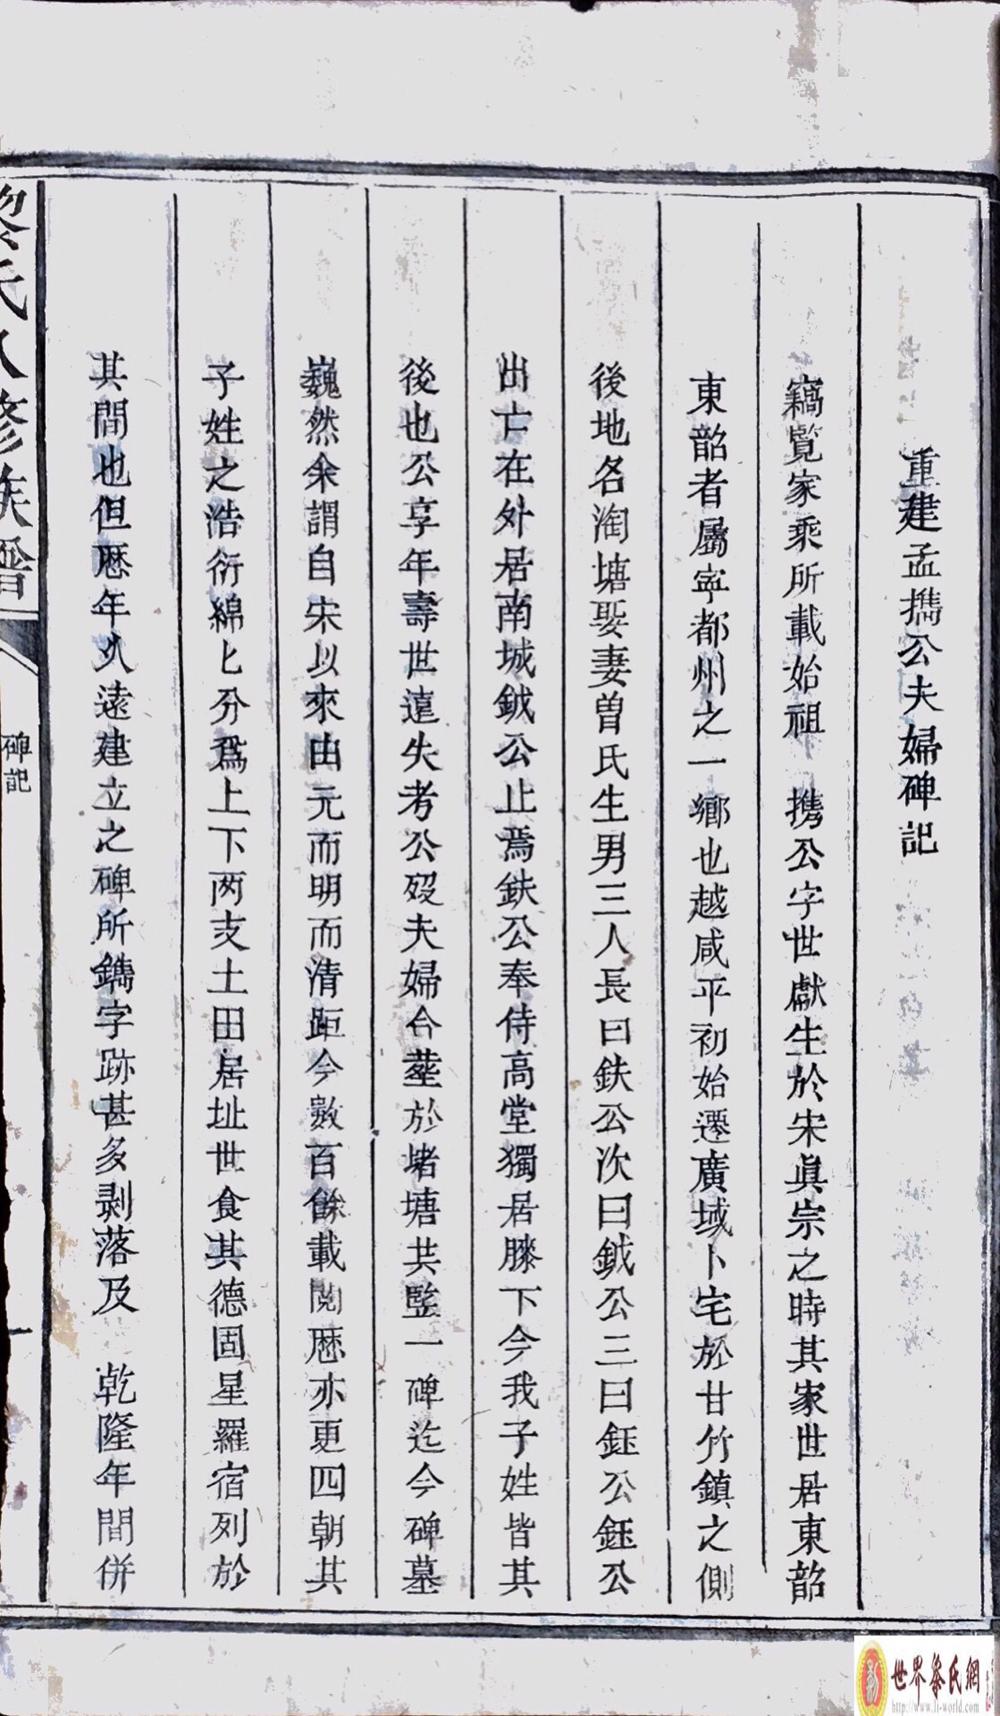 重建孟擕公夫婦碑記
竊覽家乘所載始祖　携公字世獻生於宋眞宗之時其家世居東韶
東韶者屬寧都州之一鄉也越咸平初始遷廣域卜宅於甘竹鎮之側
後地名淘塘娶妻曽氏生男三人長曰鈇公次曰鉞公三曰鈺公鈺公
出亡在外居南城鉞公止焉鈇公奉侍高堂獨居膝下今我子姓皆其
後也公享年壽世遠失考公歿夫婦合塟於堵塘共竪一碑迄今碑墓
巍然余謂自宋以來由元而明而清距今數百餘載閲厯亦更四朝其
子姓之浩衍綿匕分爲上下两支土田居址世食其德固星羅宿列於
其間也但厯年久遠建立之碑所鐫字跡甚多剥落及　乾隆年間併
黎氏八修族譜
碑記
一
世界黎氏網
http://www.li-world.com